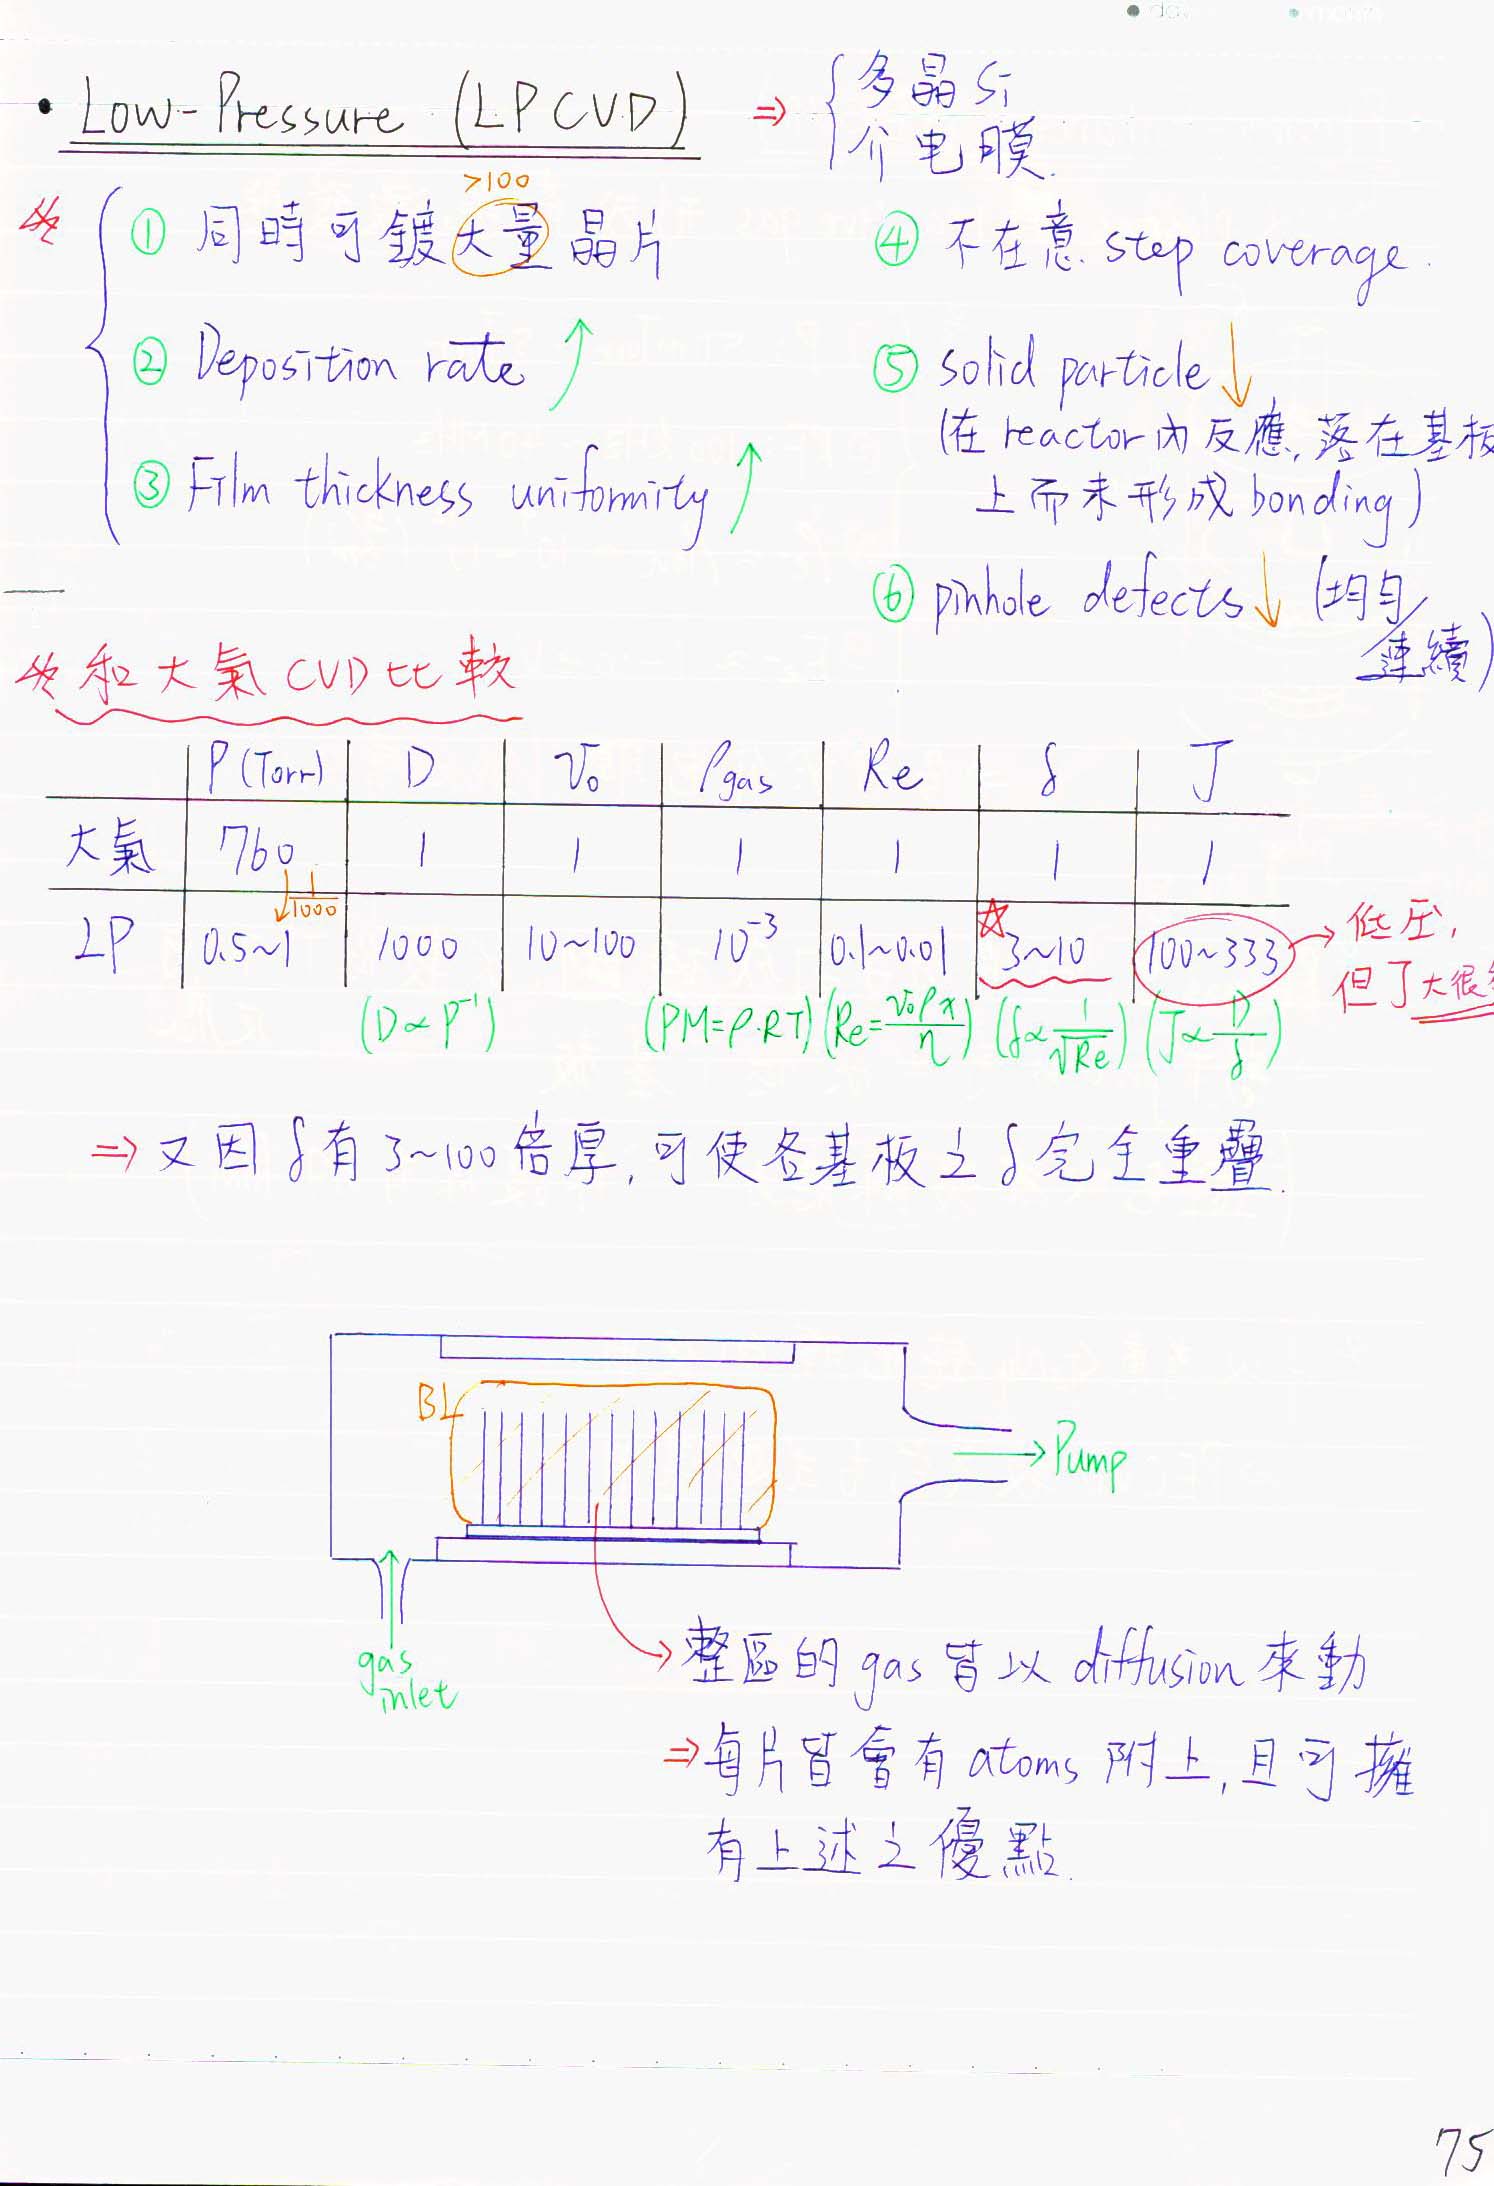 • Low-Pressure (LPCVD) ⇒ { 多晶 Si
介电膜.
>100
① 同時可鍍大量晶片
② Deposition rate ↑
③ Film thickness uniformity ↑
④ 不在意 step coverage.
⑤ solid particle ↓
(在 reactor 內反應, 落在基板
上而未形成 bonding)
⑥ pinhole defects ↓ (均勻/
連續)
和大氣 CVD 比較
P (Torr) D V₀ ρgas Re δ J
大氣 760 1 1 1 1 1 1
↓ 1/1000
LP 0.5~1 1000 10~100 10⁻³ 0.1~0.01 ☆ 3~10 100~333 → 低压,
但J大很
(D ∝ P⁻¹) (PM=ρ·RT) (Re=V₀ρx/η) (δ∝1/√Re) (J∝D/δ)
⇒ 又因 δ 有 3~100 倍厚, 可使各基板之 δ 完全重疊.
BL
→ Pump
gas
inlet
→ 整區的 gas 皆以 diffusion 來動
⇒ 每片皆會有 atoms 附上, 且可擁
有上述之優點.
75